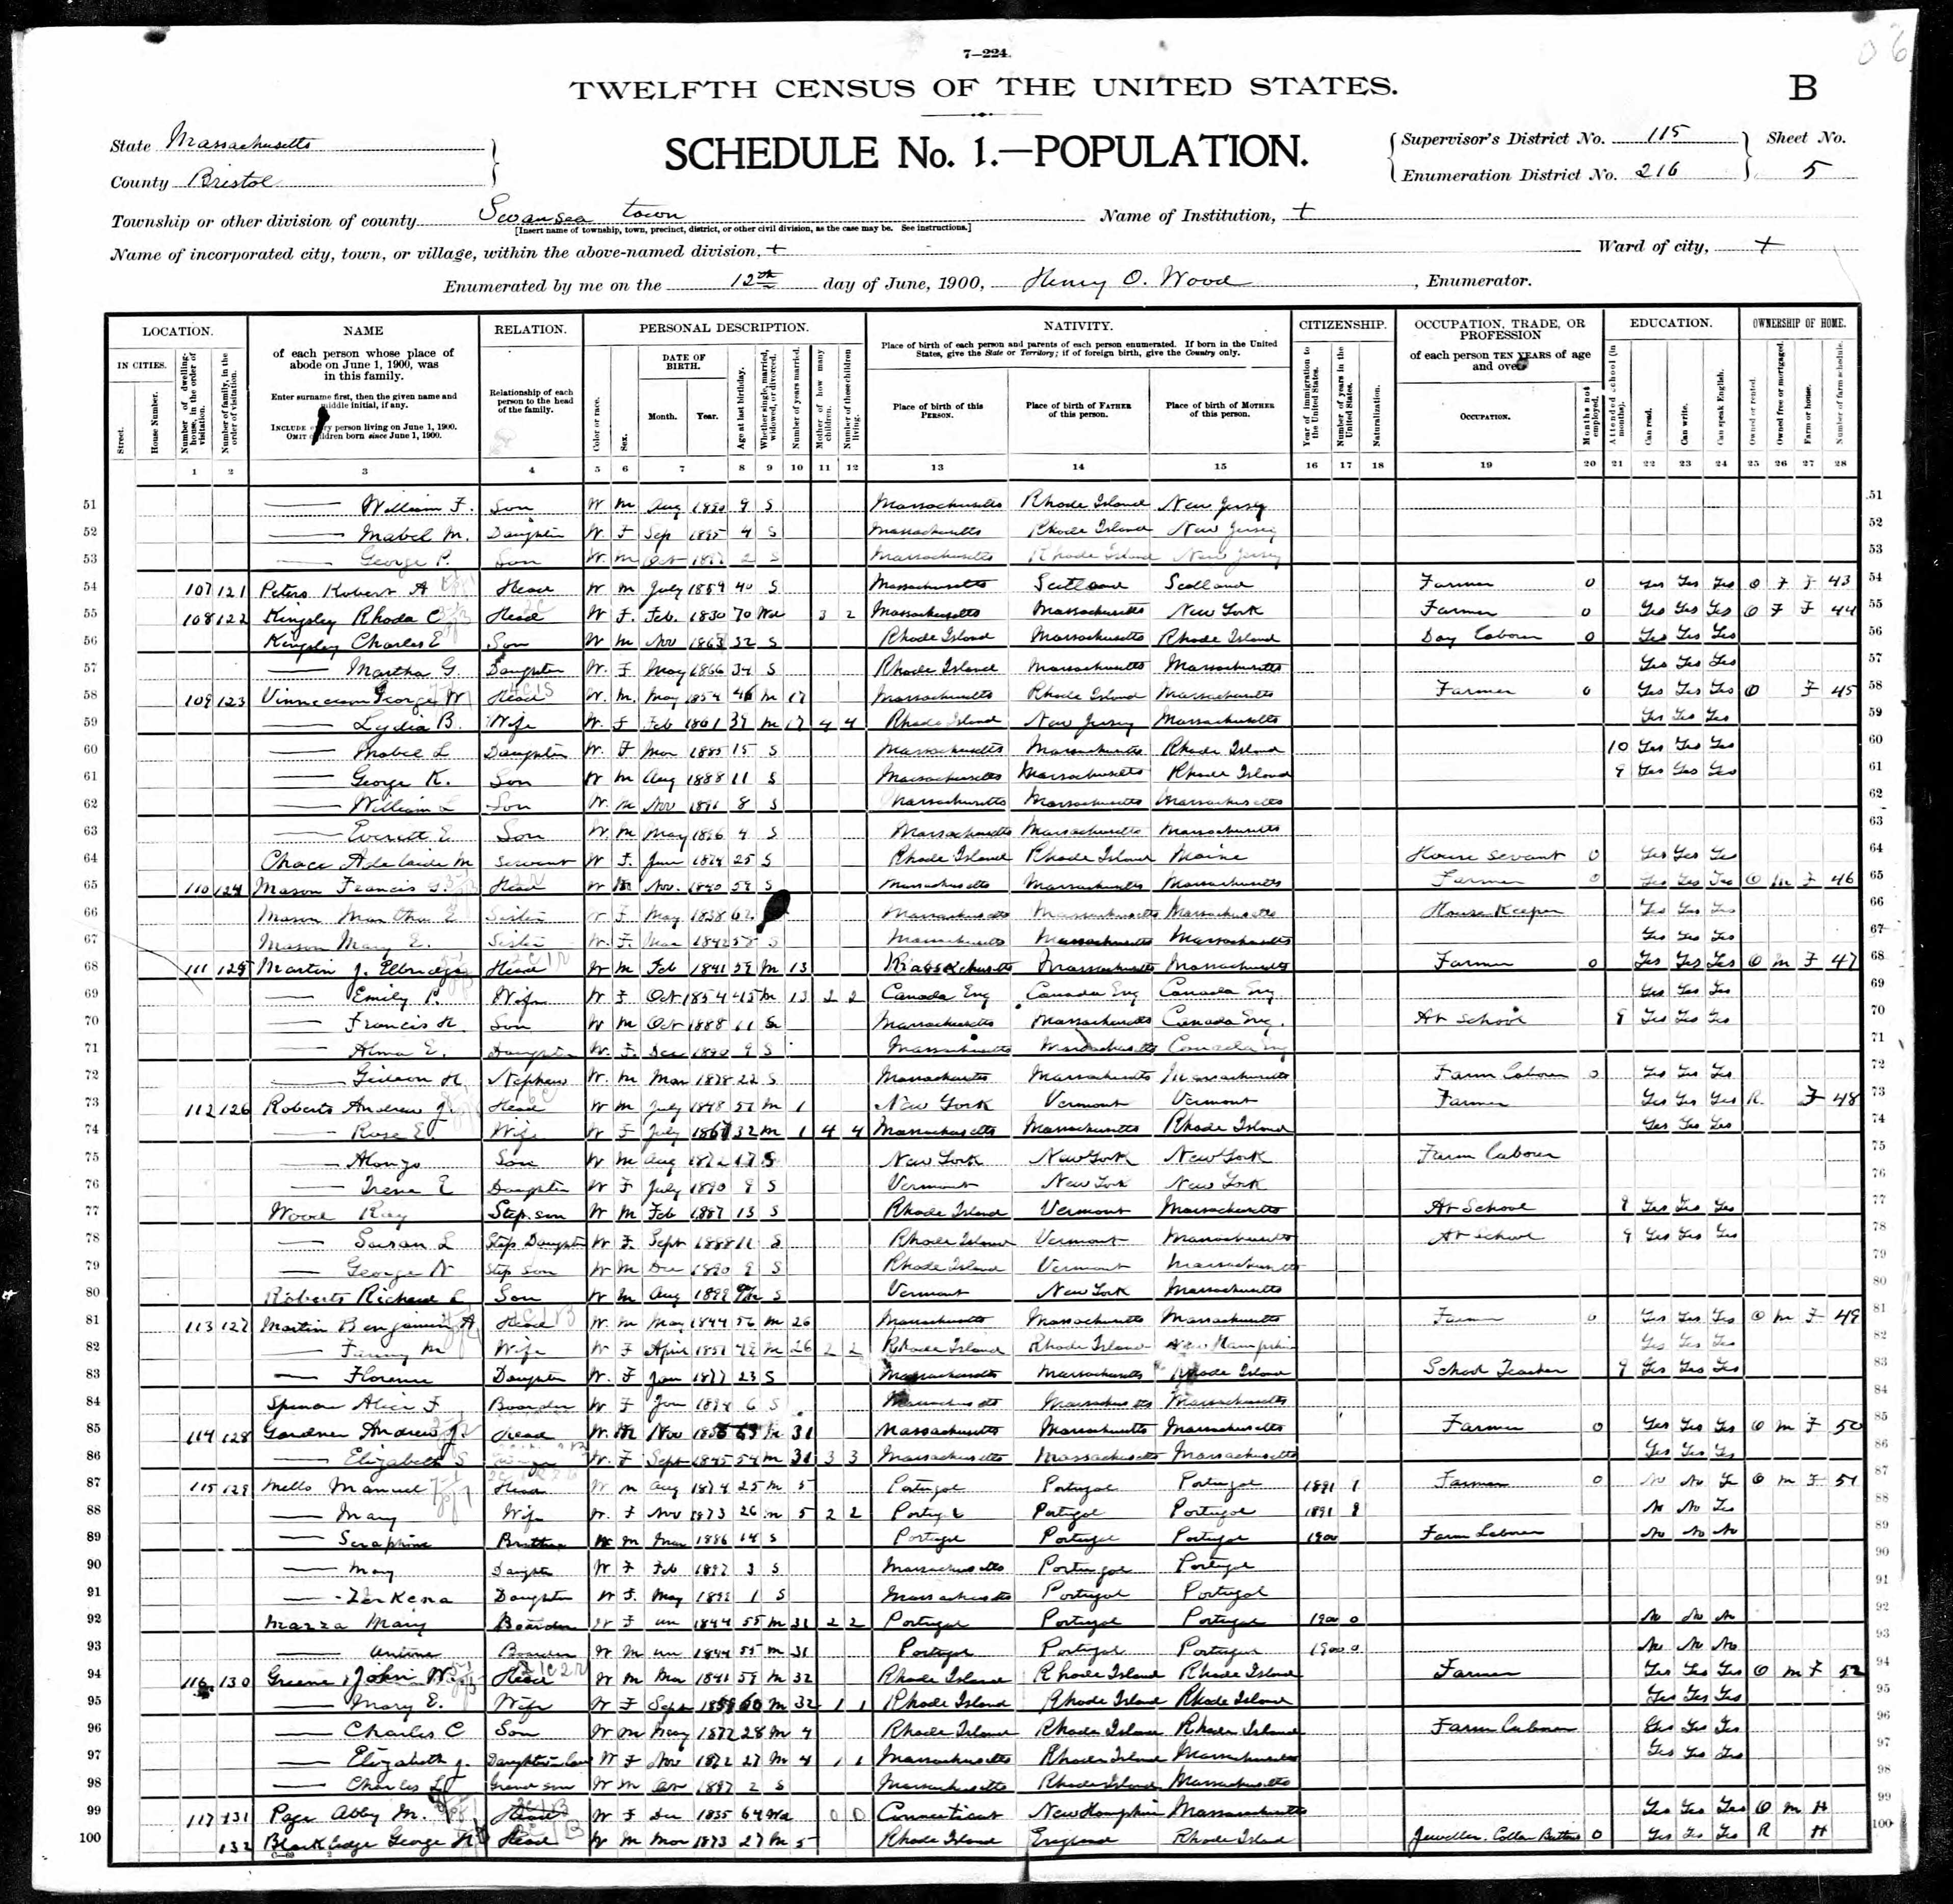 7—224.
06
TWELFTH CENSUS OF THE UNITED STATES.
B
State Massachusetts
County Bristol
SCHEDULE No. 1.—POPULATION.
Supervisor's District No. 115
Enumeration District No. 216
Sheet No.
5
Township or other division of county Swansea town
[Insert name of township, town, precinct, district, or other civil division, as the case may be. See instructions.]
Name of Institution, +
Name of incorporated city, town, or village, within the above-named division, +
Ward of city, +
Enumerated by me on the 12th day of June, 1900, Henry O. Wood, Enumerator.
LOCATION. NAME RELATION. PERSONAL DESCRIPTION. NATIVITY. CITIZENSHIP. OCCUPATION, TRADE, OR PROFESSION EDUCATION. OWNERSHIP OF HOME.
IN CITIES. Street. House Number. Number of dwelling-house, in the order of visitation. Number of family, in the order of visitation.
of each person whose place of abode on June 1, 1900, was in this family.
Enter surname first, then the given name and middle initial, if any.
INCLUDE every person living on June 1, 1900.
OMIT children born since June 1, 1900.
Relationship of each person to the head of the family.
Color or race. Sex. DATE OF BIRTH. Month. Year. Age at last birthday. Whether single, married, widowed, or divorced. Number of years married. Mother of how many children. Number of these children living.
Place of birth of each person and parents of each person enumerated. If born in the United States, give the State or Territory; if of foreign birth, give the Country only.
Place of birth of this PERSON. Place of birth of FATHER of this person. Place of birth of MOTHER of this person.
Year of immigration to the United States. Number of years in the United States. Naturalization.
of each person TEN YEARS of age and over.
OCCUPATION. Months not employed.
Attended school (in months). Can read. Can write. Can speak English.
Owned or rented. Owned free or mortgaged. Farm or house. Number of farm schedule.
1 2 3 4 5 6 7 8 9 10 11 12 13 14 15 16 17 18 19 20 21 22 23 24 25 26 27 28
51 — William F. Son W M Aug 1890 9 S Massachusetts Rhode Island New Jersey 51
52 — Mabel M. Daughter W. F Sep 1895 4 S Massachusetts Rhode Island New Jersey 52
53 — George P. Son W. M Oct 1897 2 S Massachusetts Rhode Island New Jersey 53
54 107 121 Peters Robert A Head W M July 1859 40 S Massachusetts Scotland Scotland Farmer 0 Yes Yes Yes O F F 43 54
55 108 122 Kingsley Rhoda C Head W F. Feb. 1830 70 Wd 3 2 Massachusetts Massachusetts New York Farmer 0 Yes Yes Yes O F F 44 55
56 Kingsley Charles E Son W M Nov 32 S Rhode Island Massachusetts Rhode Island Day Labour 0 Yes Yes Yes 56
57 — Martha G Daughter W. F May 1866 34 S Rhode Island Massachusetts Massachusetts Yes Yes Yes 57
58 109 123 Vinnecum George W Head W. M. May 1854 46 M 17 Massachusetts Rhode Island Massachusetts Farmer 0 Yes Yes Yes O F 45 58
59 — Lydia B. Wife W. F Feb 1861 39 M 17 4 4 Rhode Island New Jersey Massachusetts Yes Yes Yes 59
60 — Mabel L Daughter W. F Mar 1885 15 S Massachusetts Massachusetts Rhode Island 10 Yes Yes Yes 60
61 — George K. Son W M Aug 1888 11 S Massachusetts Massachusetts Rhode Island 9 Yes Yes Yes 61
62 — William L Son W. M Nov 1891 8 S Massachusetts Massachusetts Massachusetts 62
63 — Everett E Son W. M May 1896 4 S Massachusetts Massachusetts Massachusetts 63
64 Chace Adelaide M Servant W F. Jun 1874 25 S Rhode Island Rhode Island Maine House Servant 0 Yes Yes Yes 64
65 110 124 Mason Francis Head W M Nov. 1840 59 S Massachusetts Massachusetts Massachusetts Farmer 0 Yes Yes Yes O M F 46 65
66 Mason Martha E Sister W F May 1838 62 Massachusetts Massachusetts Massachusetts House Keeper Yes Yes Yes 66
67 Mason Mary E. Sister W. F. Mar 1842 S Massachusetts Massachusetts Massachusetts Yes Yes Yes 67
68 111 125 Martin J. Elbridge Head W M Feb 1841 59 M 13 Massachusetts Massachusetts Massachusetts Farmer 0 Yes Yes Yes O M F 47 68
69 — Emily P. Wife W F Oct 1854 45 M 13 2 2 Canada Eng Canada Eng Canada Eng Yes Yes Yes 69
70 — Francis H. Son W M Oct 1888 11 S Massachusetts Massachusetts Canada Eng. At School 8 Yes Yes Yes 70
71 — Alma E. Daughter W. F. Dec 1890 9 S Massachusetts Massachusetts Canada Eng 71
72 — Gideon H. Nephew W. M Mar 1878 22 S Massachusetts Massachusetts Massachusetts Farm Labour 0 Yes Yes Yes 72
73 112 126 Roberts Andrew J. Head W M July 1848 51 M 1 New York Vermont Vermont Farmer Yes Yes Yes R. F 48 73
74 — Rose E. Wife W F July 1867 32 M 1 4 4 Massachusetts Massachusetts Rhode Island Yes Yes Yes 74
75 — Alonzo Son W M Aug 17 S New York New York New York Farm Labour 75
76 — Irene E Daughter W F July 1890 9 S Vermont New York New York 76
77 Wood Ray Step son W M Feb 1887 13 S Rhode Island Vermont Massachusetts At School 9 Yes Yes Yes 77
78 — Susan L Step Daughter W F. Sept 1888 11 S Rhode Island Vermont Massachusetts At School 9 Yes Yes Yes 78
79 — George N Step Son W M Dec 1890 9 S Rhode Island Vermont Massachusetts 79
80 Roberts Richard L Son W M Aug 1899 9/12 S Vermont New York Massachusetts 80
81 113 127 Martin Benjamin A Head W. M May 1844 56 M 26 Massachusetts Massachusetts Massachusetts Farmer 0 Yes Yes Yes O M F 49 81
82 — Fanny M Wife W F April 1851 49 M 26 2 2 Rhode Island Rhode Island New Hampshire Yes Yes Yes 82
83 — Florence Daughter W. F Jan 1877 23 S Massachusetts Massachusetts Rhode Island School Teacher 9 Yes Yes Yes 83
84 Alice F Boarder W F Jan 1894 6 S Massachusetts Massachusetts Massachusetts 84
85 114 128 Gardner Andrew J. Head W. M Nov M 31 Massachusetts Massachusetts Massachusetts Farmer 0 Yes Yes Yes O M F 50 85
86 — Elizabeth S W. F Sept 1845 54 M 31 3 3 Massachusetts Massachusetts Massachusetts Yes Yes Yes 86
87 115 129 Mello Manuel Head W M Aug 1874 25 M 5 Portugal Portugal Portugal 1891 Farmer 0 No No O M F 51 87
88 — Mary Wife W. F Nov 1873 26 M 5 2 2 Portugal Portugal Portugal 1891 No No Yes 88
89 — Seraphine Brother W M Mar 1886 14 S Portugal Portugal Portugal 1900 Farm Labour No No No 89
90 — Mary Daughter W F Feb 1897 3 S Massachusetts Portugal Portugal 90
91 — Daughter W F. May 1899 1 S Massachusetts Portugal Portugal 91
92 Mazza Mary Boarder W F un 1844 55 M 31 2 2 Portugal Portugal Portugal 1900 0 No No No 92
93 — Antone Boarder W M un 1844 55 M 31 Portugal Portugal Portugal 1900 0 No No No 93
94 116 130 Greene John W. Head W M Mar 1841 59 M 32 Rhode Island Rhode Island Rhode Island Farmer Yes Yes Yes O M F 52 94
95 — Mary E. Wife W F Sept 60 M 32 1 1 Rhode Island Rhode Island Rhode Island Yes Yes Yes 95
96 — Charles C Son W M May 1872 28 M 4 Rhode Island Rhode Island Rhode Island Farm Labour Yes Yes Yes 96
97 — Elizabeth J. Daughter in law W F Nov 1872 27 M 4 1 1 Massachusetts Rhode Island Massachusetts Yes Yes Yes 97
98 — Charles L Grand son W M 1897 2 S Massachusetts Rhode Island Massachusetts 98
99 117 131 Page Abby M. Head W F Dec 1835 64 Wd 0 0 Connecticut New Hampshire Massachusetts Yes Yes Yes O M H 99
100 132 Blackledge George H Head W M Mar 1873 27 M 5 Rhode Island England Rhode Island Jeweller. Collar Buttons 0 Yes Yes Yes R H 100